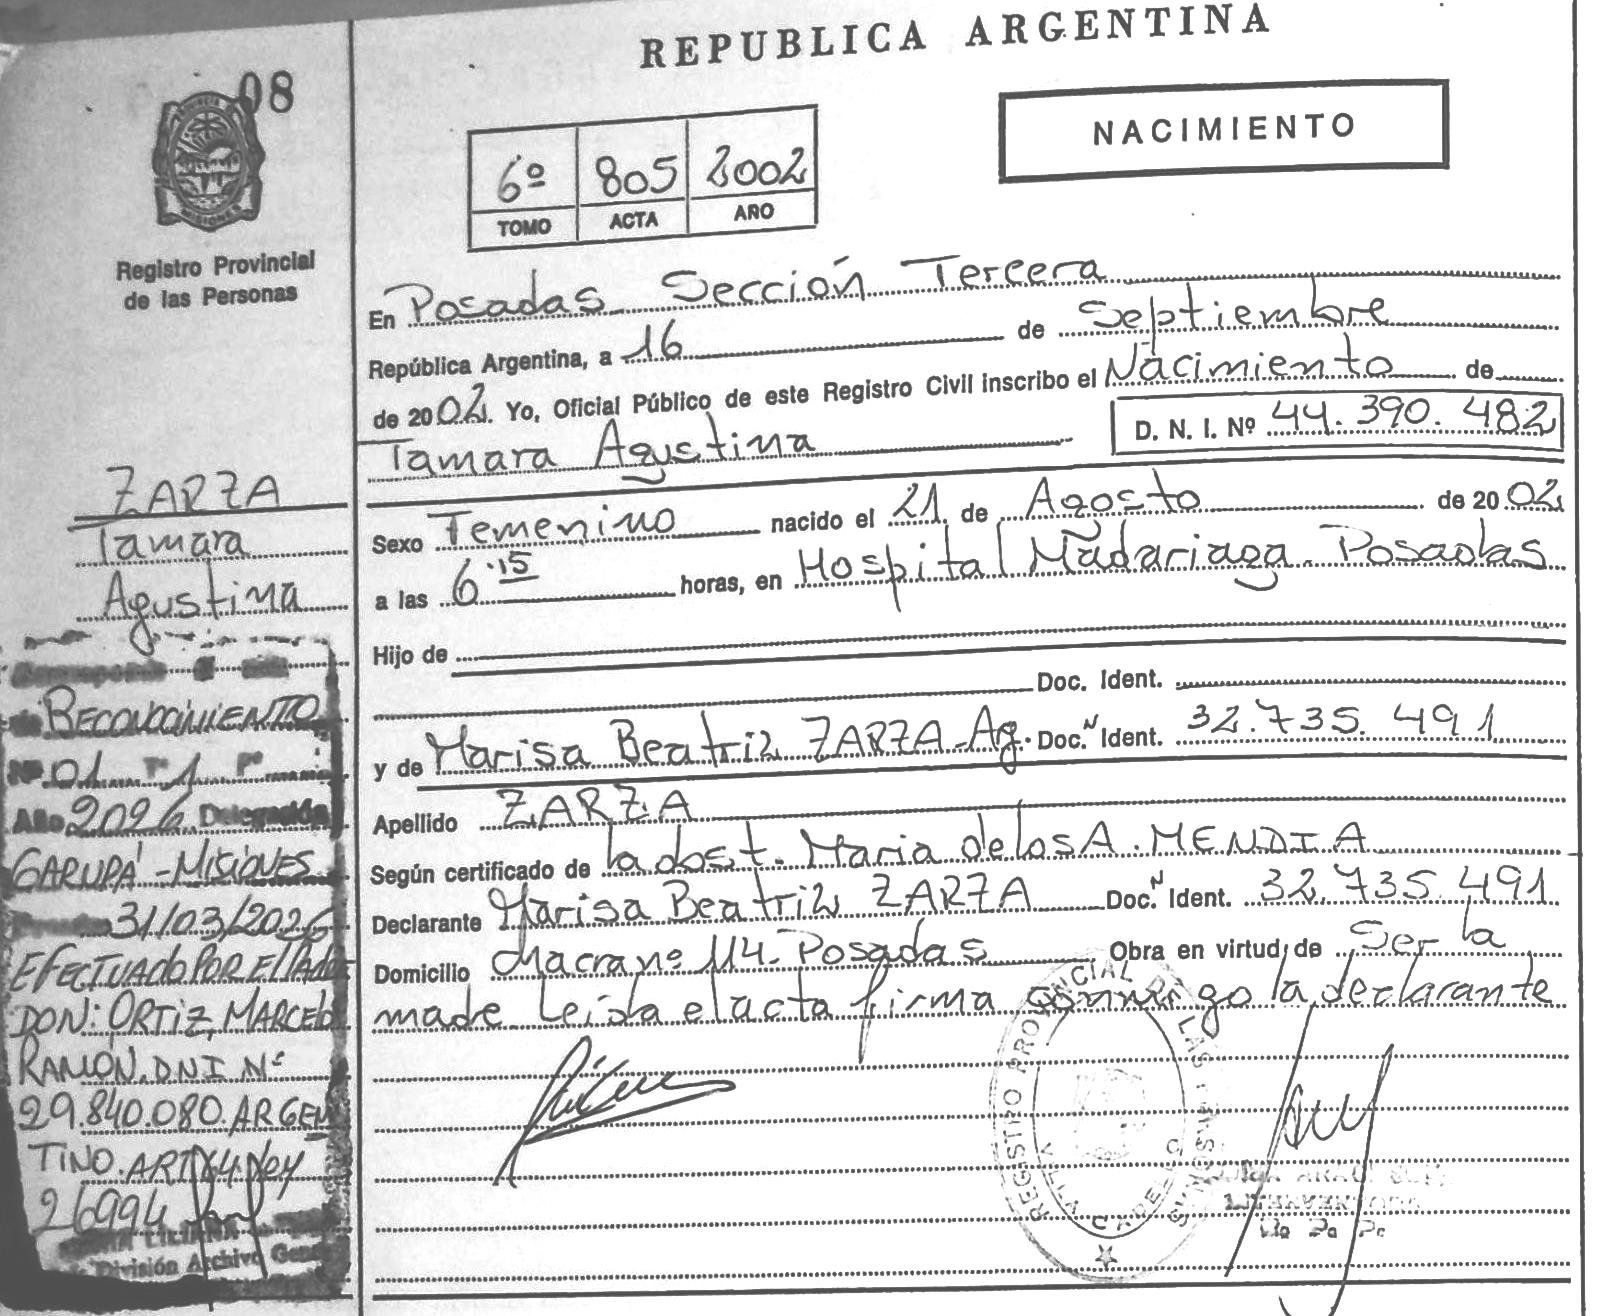 REPUBLICA ARGENTINA
08
PROVINCIA DE
MISIONES
Registro Provincial
de las Personas
NACIMIENTO
6º 805 2002
TOMO ACTA AÑO
En Posadas Sección Tercera
República Argentina, a 16 de Septiembre
de 2002. Yo, Oficial Público de este Registro Civil inscribo el Nacimiento de
Tamara Agustina D. N. I. Nº 44.390.482
Sexo Femenino nacido el 21 de Agosto de 2002
a las 6.15 horas, en Hospital Madariaga. Posadas
Hijo de
Doc. Ident.
y de Marisa Beatriz ZARZA-Ag. Doc.N Ident. 32.735.491
Apellido ZARZA
Según certificado de la dost. Maria de los A. MENDIA
Declarante Marisa Beatriz ZARZA Doc.N Ident. 32.735.491
Domicilio Chacra nº 114. Posadas Obra en virtud de Ser la
madre Leida el acta firma conmigo la declarante
REGISTRO PROVINCIAL DE LAS PERSONAS
VILLA CABELLO
ZARZA
Tamara
Agustina
RECONOCIMIENTO
Nº 01 Tº 1 Fº
Año 2026 Delegación
GARUPÁ - MISIONES
31/03/2026
EFECTUADO POR EL PADRE
DON: ORTIZ, MARCELO
RAMÓN. DNI Nº
29.840.080. ARGEN
TINO. ART 64. Ley
26994
División Archivo General